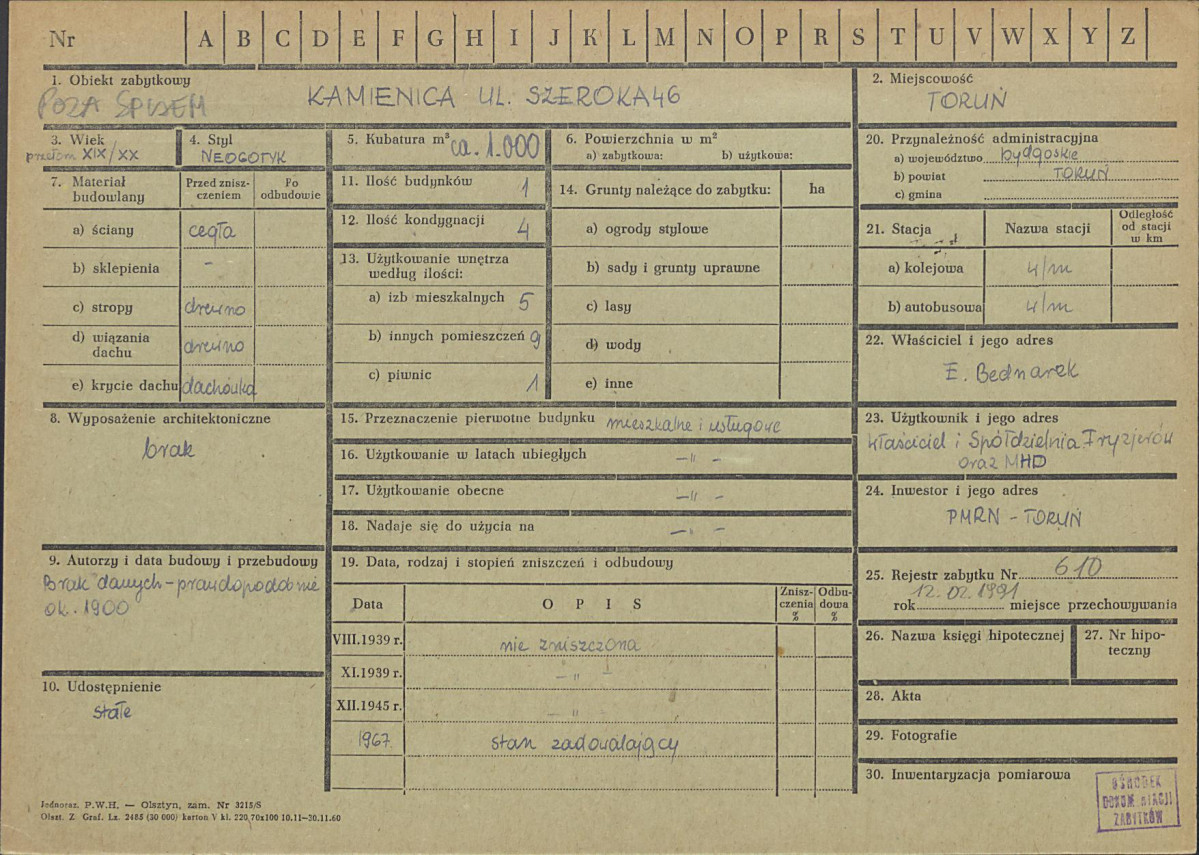 Nr A B C D E F G H I J K L M N O P R S T U V W X Y Z
1. Obiekt zabytkowy
POZA SPISEM
KAMIENICA UL. SZEROKA 46
2. Miejscowość
TORUŃ
3. Wiek
przełom XIX/XX
4. Styl
NEOGOTYK
5. Kubatura m³ ca. 1.000
6. Powierzchnia w m²
a) zabytkowa: b) użytkowa:
7. Materiał budowlany
Przed zniszczeniem
Po odbudowie
a) ściany cegła
b) sklepienia -
c) stropy drewno
d) wiązania dachu drewno
e) krycie dachu dachówka
8. Wyposażenie architektoniczne
brak
9. Autorzy i data budowy i przebudowy
Brak danych - prawdopodobnie
ok. 1900
10. Udostępnienie
stałe
11. Ilość budynków 1
12. Ilość kondygnacji 4
13. Użytkowanie wnętrza
według ilości:
a) izb mieszkalnych 5
b) innych pomieszczeń 9
c) piwnic 1
14. Grunty należące do zabytku: ha
a) ogrody stylowe
b) sady i grunty uprawne
c) lasy
d) wody
e) inne
15. Przeznaczenie pierwotne budynku mieszkalne i usługowe
16. Użytkowanie w latach ubiegłych -"-
17. Użytkowanie obecne -"-
18. Nadaje się do użycia na -"-
19. Data, rodzaj i stopień zniszczeń i odbudowy
Data OPIS Zniszczenia % Odbudowa %
VIII.1939 r. nie zniszczona
XI.1939 r. -"-
XII.1945 r. -"-
1967. stan zadowalający
20. Przynależność administracyjna
a) województwo bydgoskie
b) powiat TORUŃ
c) gmina
21. Stacja Nazwa stacji Odległość od stacji w km
a) kolejowa w/m
b) autobusowa w/m
22. Właściciel i jego adres
E. Bednarek
23. Użytkownik i jego adres
właściciel i Spółdzielnia Fryzjerów
oraz MHD
24. Inwestor i jego adres
PMRN - TORUŃ
25. Rejestr zabytku Nr 610
12.02.1991
rok miejsce przechowywania
26. Nazwa księgi hipotecznej
27. Nr hipoteczny
28. Akta
29. Fotografie
30. Inwentaryzacja pomiarowa
OŚRODEK
DOKUMENTACJI
ZABYTKÓW
Jednoraz. P.W.H. — Olsztyn, zam. Nr 3215/S
Olszt. Z. Graf. Lz. 2485 (30 000) karton V kl. 220 70x100 10.11—30.11.60